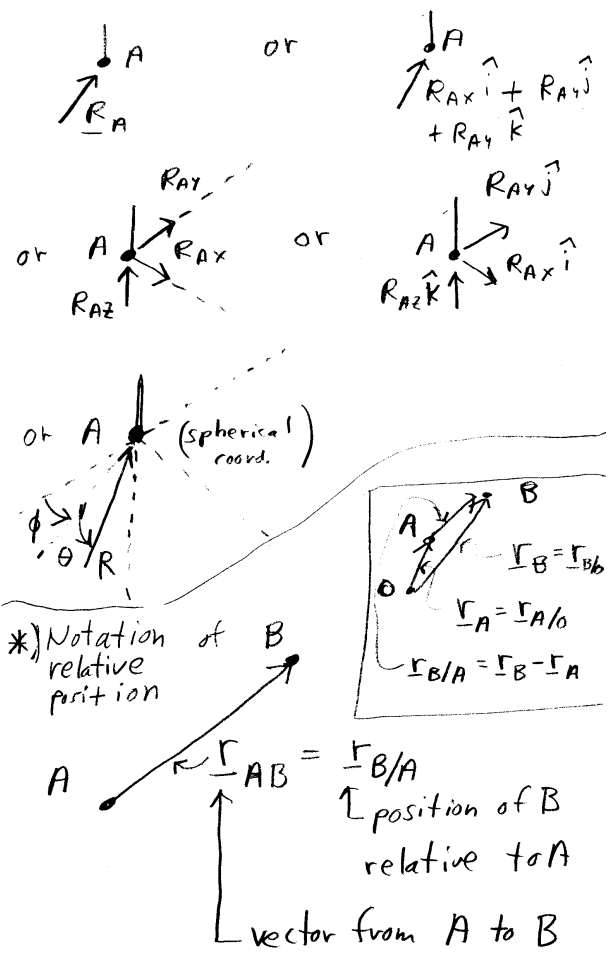 A or A
R_A R_AX î + R_AY ĵ
+ R_AY k̂
R_AY R_AY ĵ
or A R_AX or A R_AX î
R_AZ R_AZ k̂
or A (spherical
coord.)
ϕ
θ R
A B
O r r
r_B = r_B/o
r_A = r_A/o
r_B/A = r_B - r_A
*) Notation of B
relative
position
A r_AB = r_B/A
position of B
relative to A
vector from A to B